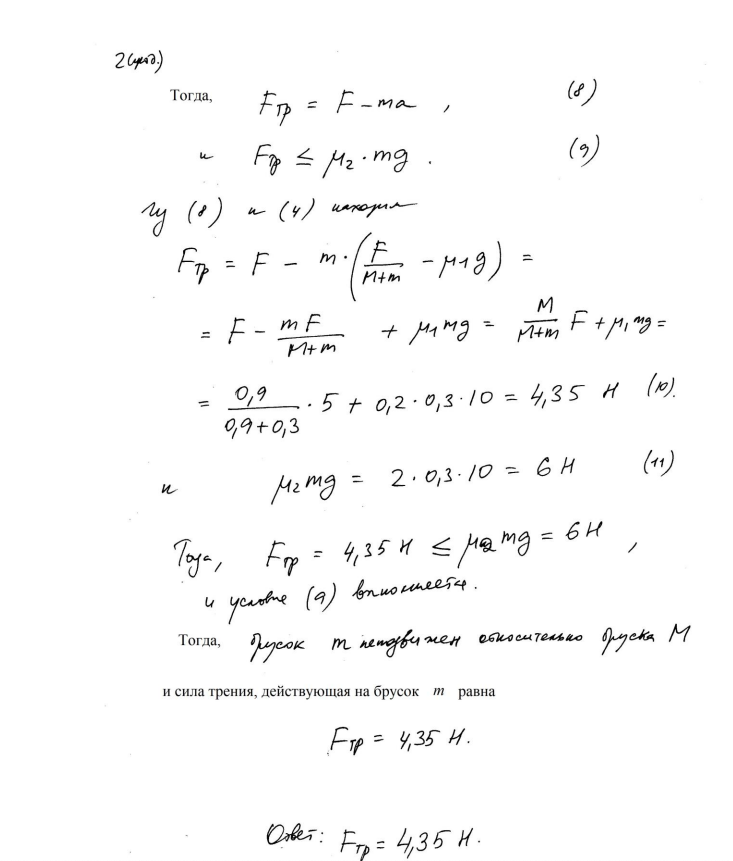 2 (прод.)
Тогда, Fтр = F - ma , (8)
и Fтр ≤ μ2 · mg . (9)
Из (8) и (4) находим
Fтр = F - m · (F/(M+m) - μ1g) =
= F - mF/(M+m) + μ1mg = M/(M+m) F + μ1mg =
= 0,9/(0,9+0,3) · 5 + 0,2 · 0,3 · 10 = 4,35 Н (10).
и μ2mg = 2 · 0,3 · 10 = 6 Н (11)
Тогда, Fтр = 4,35 Н ≤ μ2mg = 6 Н ,
и условие (9) выполняется.
Тогда, брусок m неподвижен относительно бруска M
и сила трения, действующая на брусок m равна
Fтр = 4,35 Н.
Ответ: Fтр = 4,35 Н.